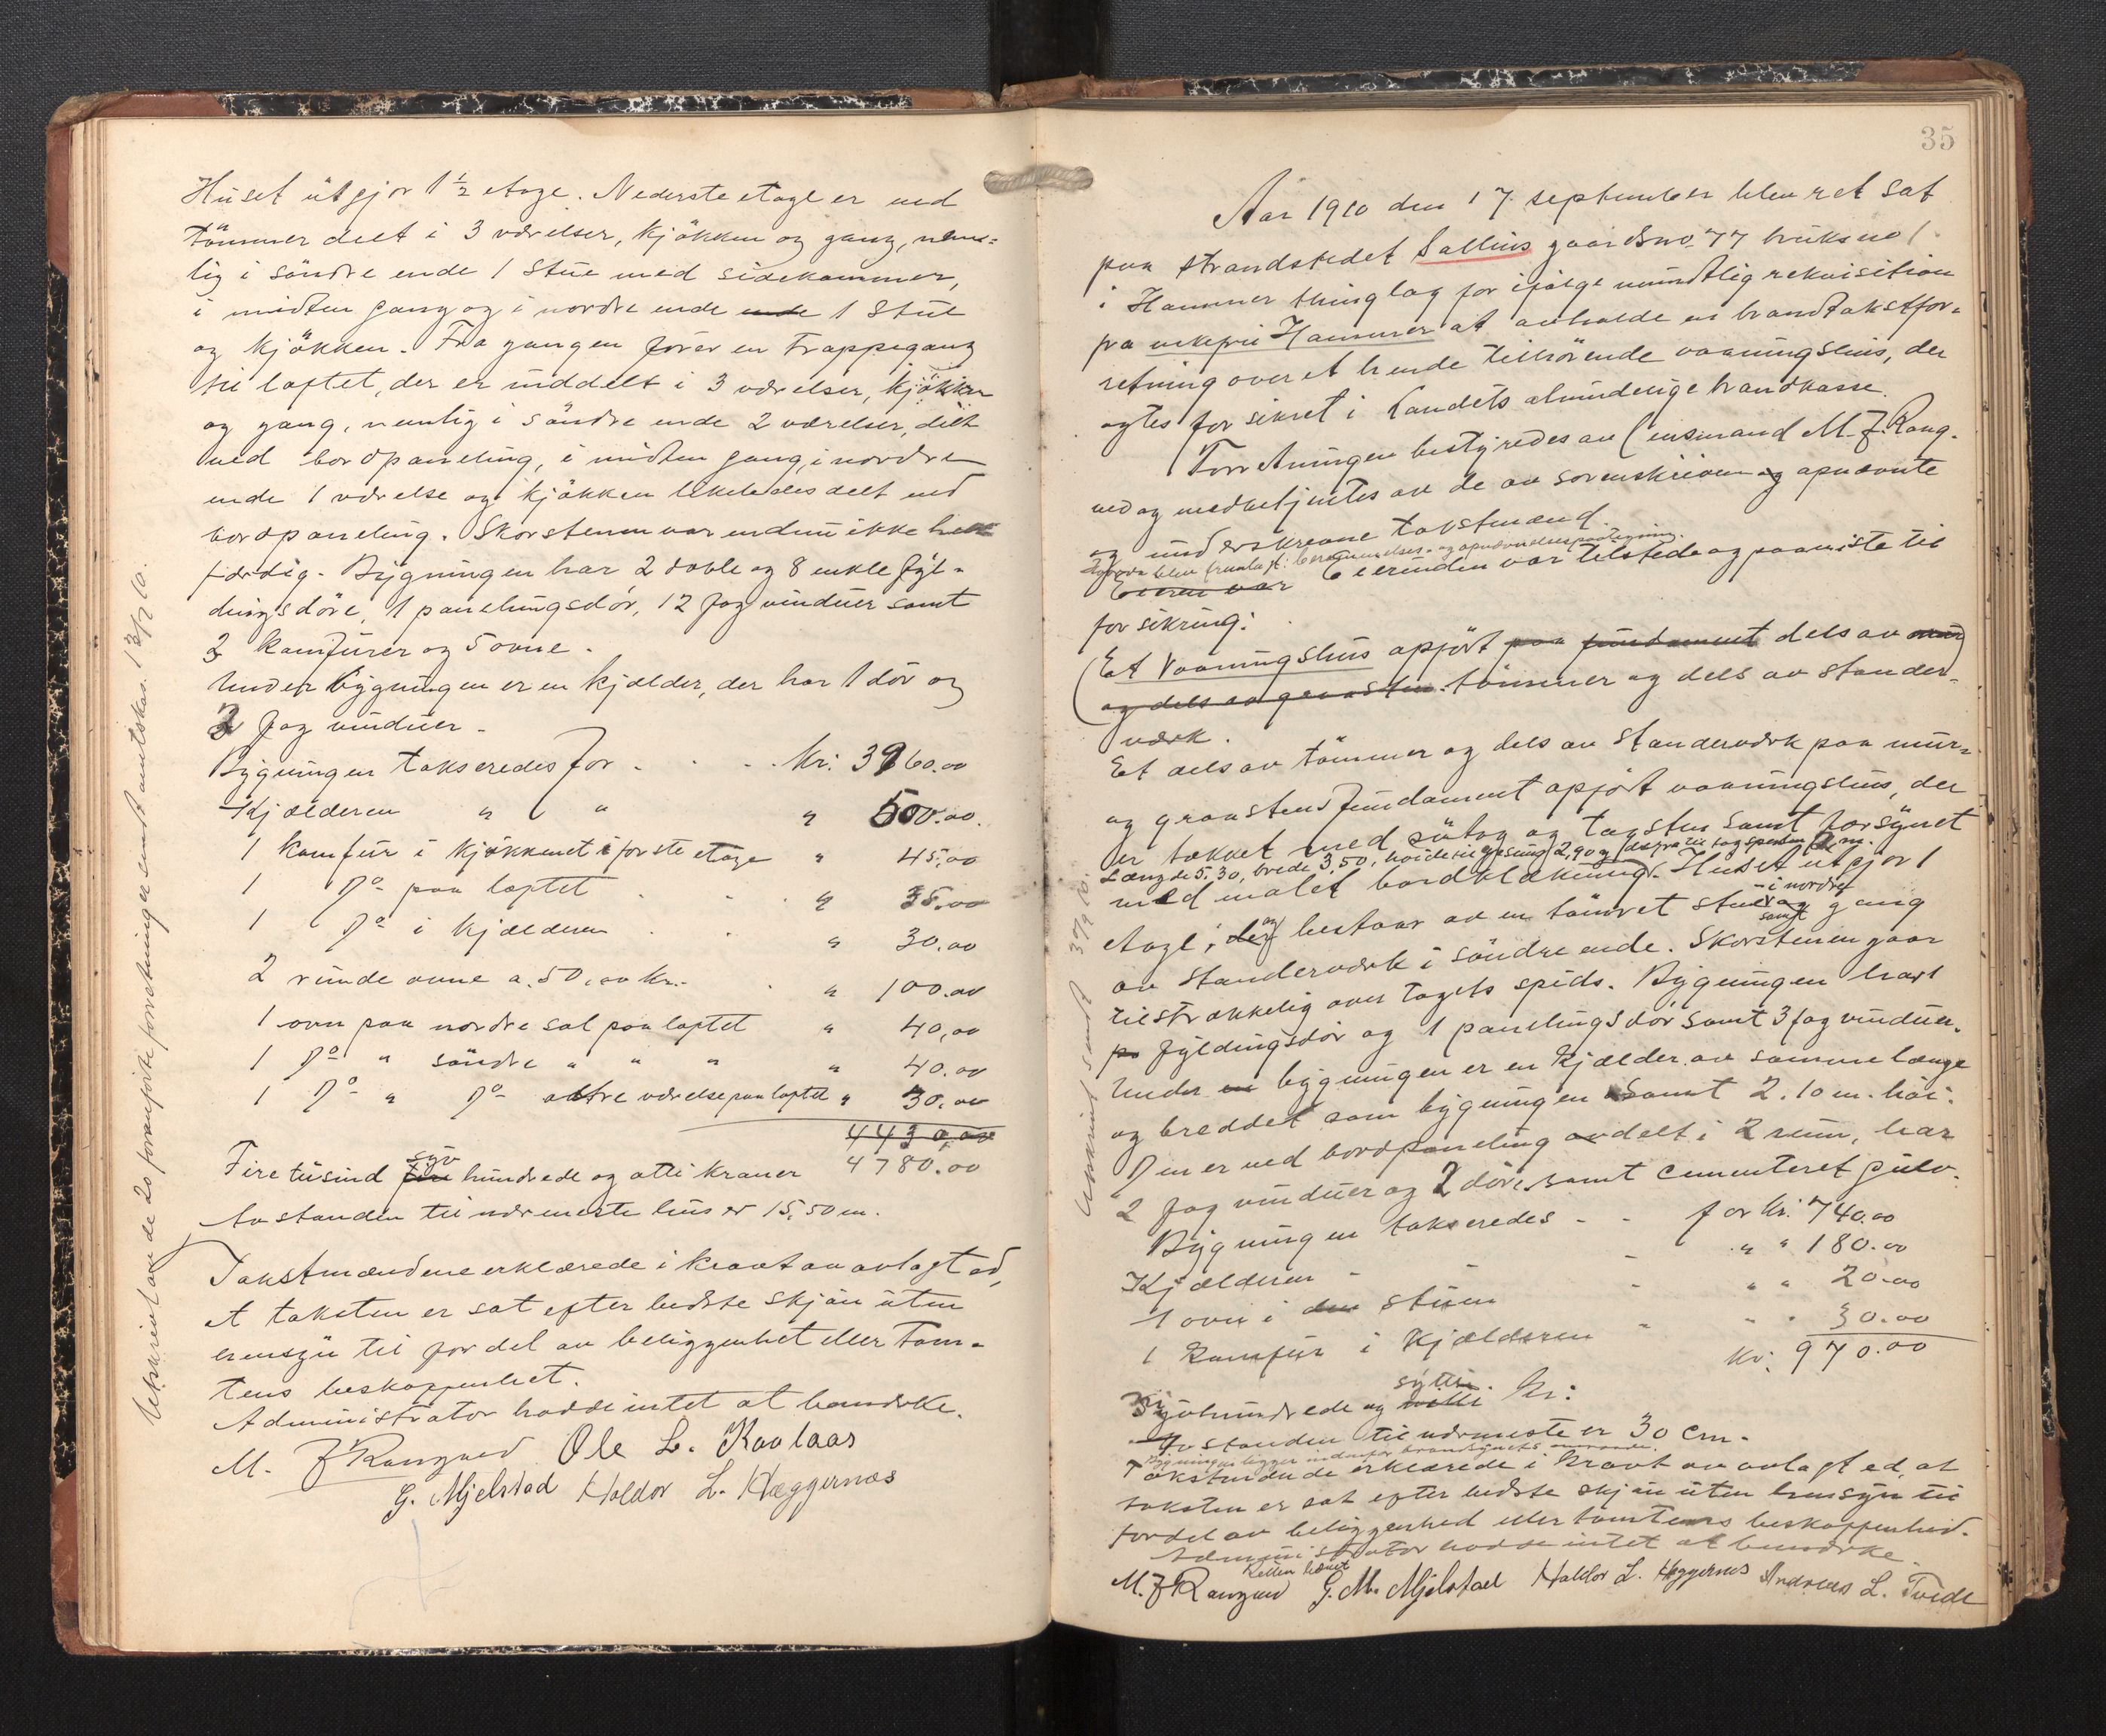 Huset utgjør 1 ½ etage. Nederste etage er ved
tömmer delt i 3 værelser, kjökken og gang, nem=
lig i söndre ende 1 stue med sidekammer,
i midten gang og i nordre ende ende 1 stue
og kjökken. Fra gangen förer en trappegang
til loftet, der er inddelt i 3 værelser, kjökken
og gang, nemlig i söndre ende 2 værelser, delt
ved bordpaneling, i midten gang, i nordre
ende 1 værelse og kjökken likeledes delt ved
bordpaneling. Skorstenen var endnu ikke helt
færdig. Bygningen har 2 doble og 8 enkle fyl-
dingsdöre, 1 panelingsdör, 12 fag vinduer samt
2 komfurer og 5 ovne.
Under bygningen er en kjælder, der har 1 dör og
3 fag vinduer.
Bygningen takseredes for . . . kr. 3960.00
Kjælderen " " " 500.00.
1 komfur i kjökkenet i förste etage " 45,00
1 Do paa loftet . . " 35.00
1 Do i kjælderen . . " 30.00
2 runde ovne a. 50,00 kr. . " 100.00
1 ovn paa nordre sal paa loftet " 40,00
1 Do " söndre " " " " 40.00
1 Do " Do værelse paa loftet " 30,00
4430,00
syv
Fire tusind fire hundrede og otti kroner 4780.00
Avstanden til nærmeste hus er 15,50 m.
Takstmændene erklærede i kraft av avlagt ed,
at taksten er sat efter bedste skjön uten
hensyn til fordel av beliggenhet eller tom-
tens beskaffenhet.
Administrator hadde intet at bemærke.
M. J Rongved Ole L. Kavlaas
G. Mjelstad Haldor L. Hæggernæs
Utskrivt av de 20 foranførte forretninger sendt amtskas. 13/9 10.
35
Aar 1910 den 17 september blev ret sat
paa strandstedet Salhus gaardsno. 77 bruksno 1
i Hammer thinglag for ifölge mundtlig rekvisition
fra enkefru Hammer at avholde en brandtakstfor-
retning over et hende tilhörende vaaningshus, der
agtes forsikret i Landets almindelige brandkasse.
Forretningen bestyredes av lensmand M. J. Rong-
ved og medbetjentes av de av sorenskriveren og opnævnte
og underskrevne takstmænd.
Först blev fremlagt: berammelses- og opnævnelsespaategning.
Eieren var Eierinden var tilstede og paaviste til
forsikring:
(Et Vaaningshus opfört paa fundament dels av mur)
og dels av graasten tömmer og dels av stander-
værk.
Et dels av tömmer og dels av standerværk paa mur-
og graastensfundament opfört vaaningshus, der
er tækket med sutag og tagsten samt forsynet
Længde 5.30, brede 3,50, höide til gesims 2,90 og derfra til tagspidsen 2 m.
med malet bordklædning. Huset utgjör 1
etage, der og bestaar av en tömret stue i nordre og samt gang
av standerværk i söndre ende. Skorstenen gaar
tilstrækkelig over tagets spids. Bygningen har 1
fyldingsdör og 1 panelingsdör samt 3 fag vinduer.
Under bygningen er en kjælder av samme længe
og bredde som bygningen samt 2.10 m. höi.
Den er ved bordpaneling avdelt i 2 rum, har
2 fag vinduer og 2 döre samt cementeret gulv.
Bygningen takseredes - - for kr. 740.00
Kjælderen - - - " " 180.00
1 ovn i den stuen - " " 20.00
1 komfur i kjælderen - " " 30.00
kr. 970.00
sytti
Ni hundrede og kr:
Avstanden til nærmeste er 30 cm.
Bygningen ligger indenfor brandsynets omraade.
Takstmændene erklærede i kraft av avlagt ed, at
taksten er sat efter bedste skjön uten hensyn til
fordel av beliggenhed eller tomtens beskaffenhed.
Administrator hadde intet at bemærke.
Retten hævet
M. J Rongved G. M. Mjelstad Haldor L. Hæggernæs Andreas L. Tvedt
Utskrivt sendt 30/9 10.